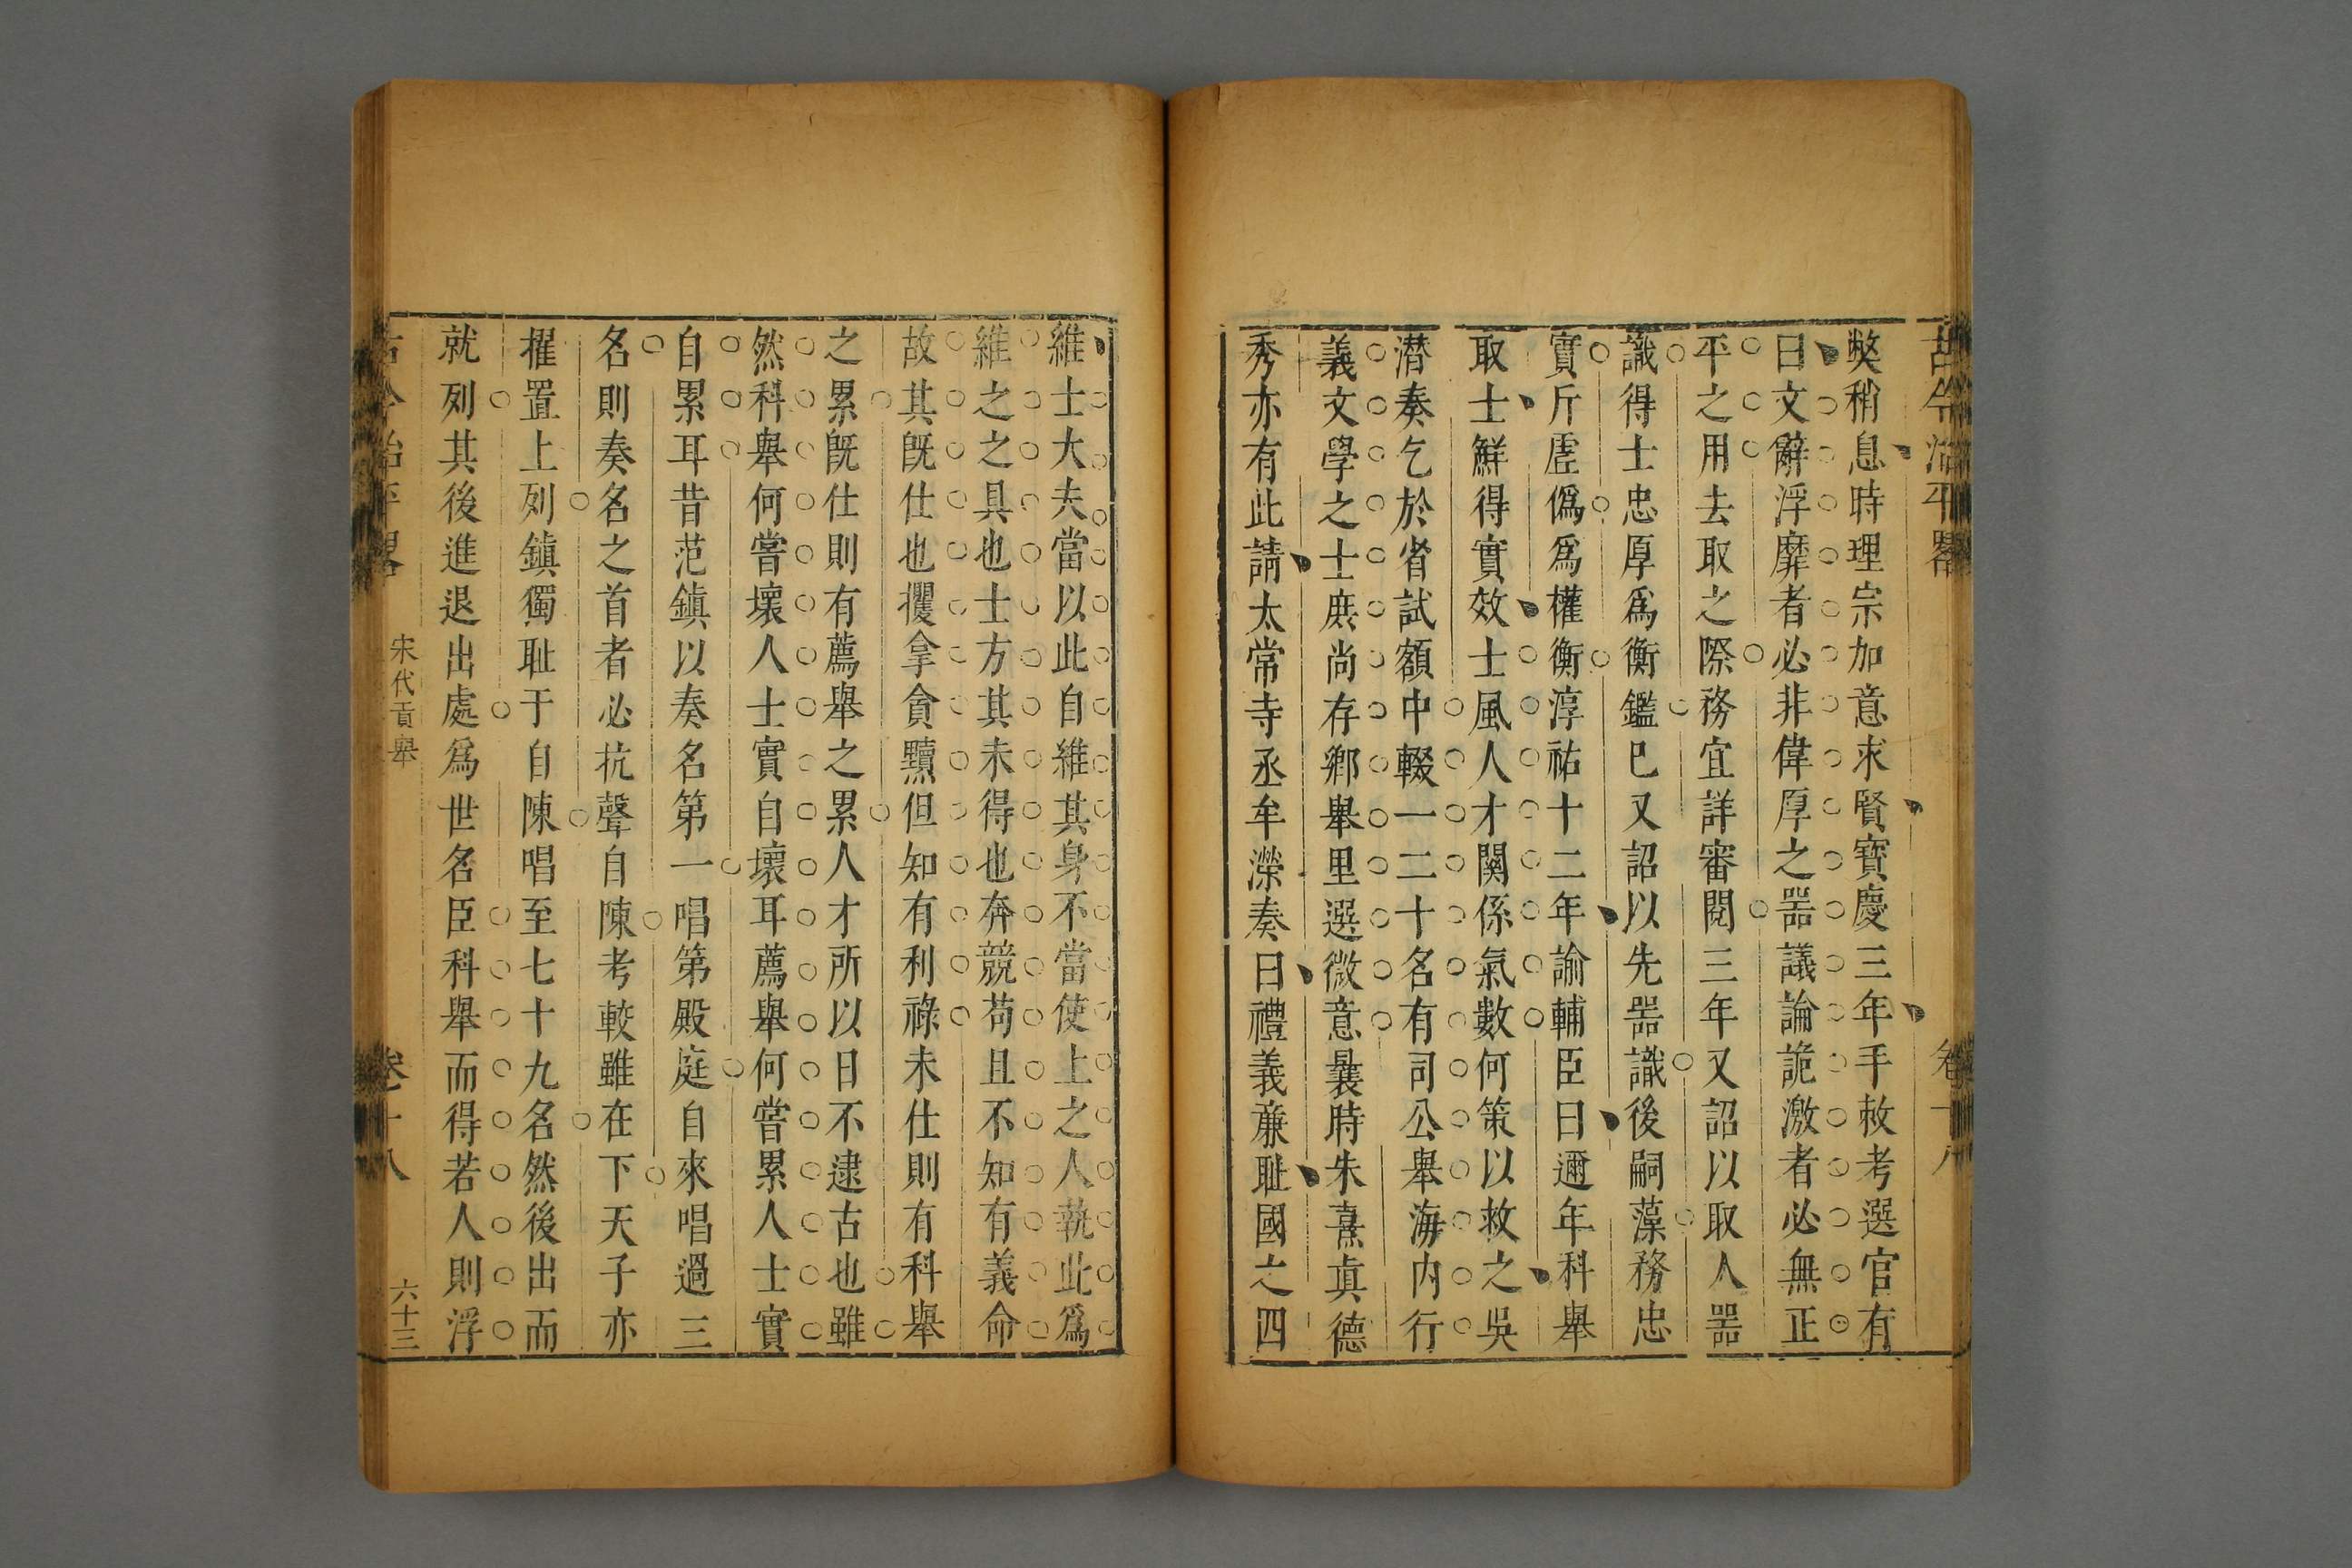 古今治平畧 卷十八
獘稍息時理宗加意求賢寶慶三年手敕考選官有
曰文辭浮靡者必非偉厚之噐議論詭激者必無正
平之用去取之際務宜詳審閱三年又詔以取人噐
識得士忠厚爲衡鑑巳又詔以先噐識後嗣藻務忠
實斤虗僞爲權衡淳祐十二年諭輔臣曰邇年科舉
取士鮮得實效士風人才關係氣數何策以救之吳
潜奏乞於省試額中輟一二十名有司公舉海内行
義文學之士庶尚存鄉舉里選微意曩時朱熹真德
秀亦有此請太常寺丞牟濚奏曰禮義亷耻國之四
維士大夫當以此自維其身不當使上之人執此爲
維之之具也士方其未得也奔競苟且不知有義命
故其既仕也攫拿貪黷但知有利祿未仕則有科舉
之累旣仕則有薦舉之累人才所以日不逮古也雖
然科舉何嘗壞人士實自壞耳薦舉何嘗累人士實
自累耳昔范鎮以奏名第一唱第殿庭自來唱過三
名則奏名之首者必抗聲自陳考較雖在下天子亦
擢置上列鎮獨耻于自陳唱至七十九名然後出而
就列其後進退出處爲世名臣科舉而得若人則浮
古今治平畧 宋代貢舉 卷十八 六十三